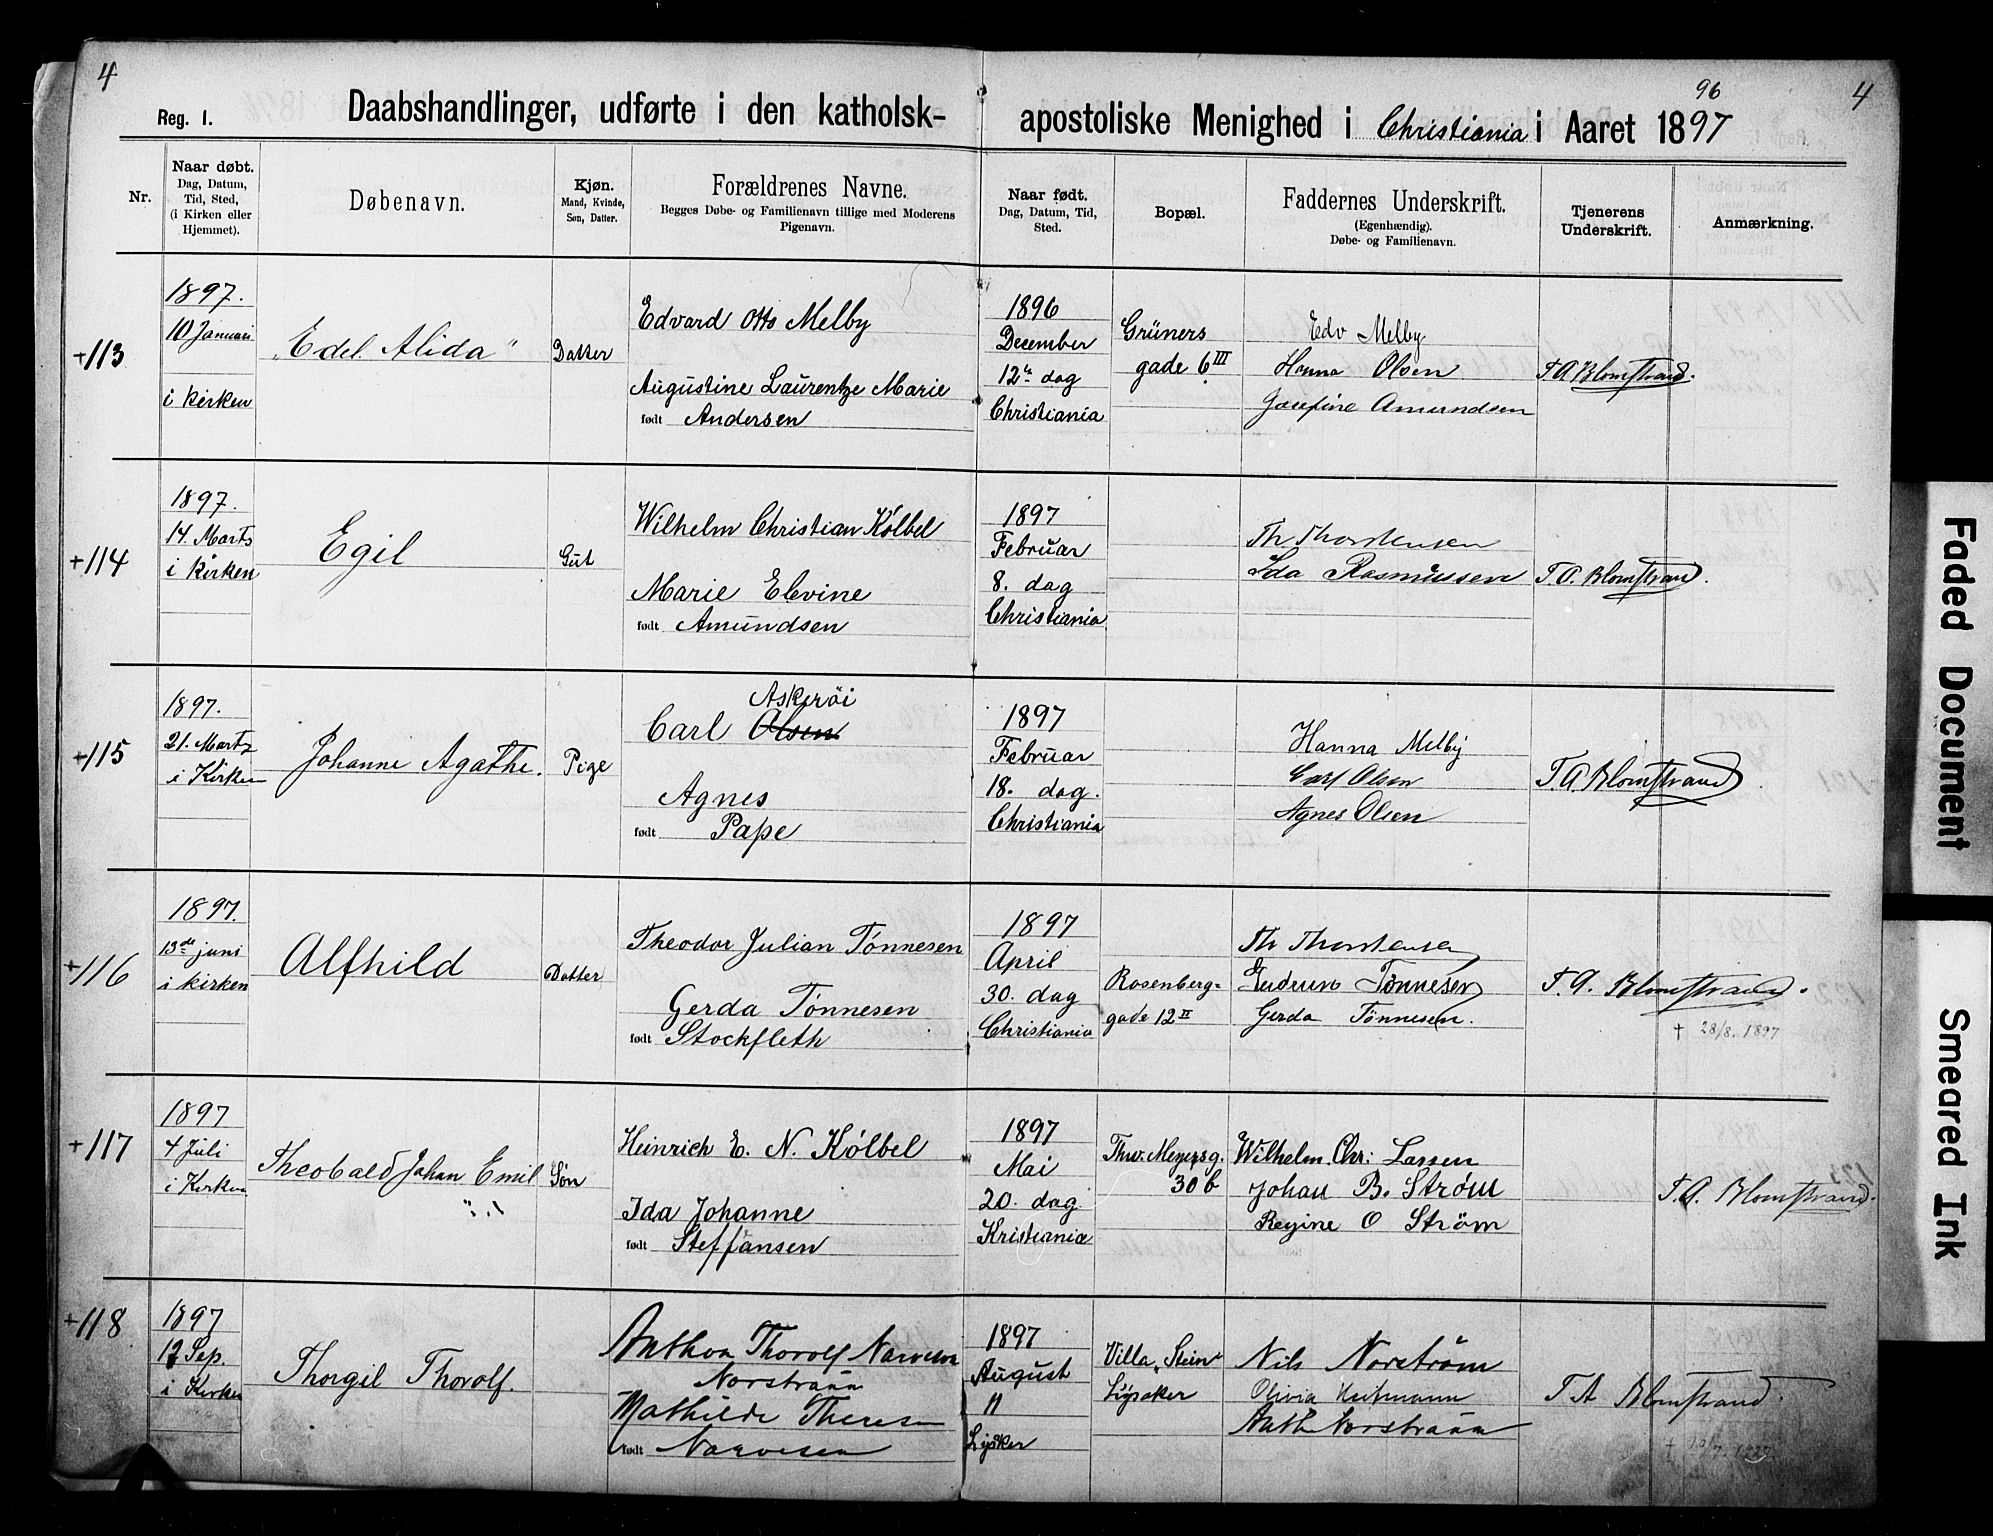 4
Reg. I.
Daabshandlinger, udførte i den katholsk-
apostoliske Menighed i Christiania i Aaret 1897
96
4
Nr.
Naar døbt.
Dag, Datum,
Tid, Sted,
(i Kirken eller
Hjemmet).
Døbenavn.
Kjøn.
Mand, Kvinde,
Søn, Datter.
Forældrenes Navne.
Begges Døbe- og Familienavn tillige med Moderens
Pigenavn.
Naar født.
Dag, Datum, Tid,
Sted.
Bopæl.
Faddernes Underskrift.
(Egenhændig).
Døbe- og Familienavn.
Tjenerens
Underskrift.
Anmærkning.
+113
1897.
10 Januari
i kirken
"Edel Alida"
Datter
Edvard Otto Melby
Augustine Laurentze Marie
født Andersen
1896
December
12te dag
Christiania
Grüners
gade 6 III
Edv Melby
Hanna Olsen
Josefine Amundsen
T. A Blomstrand.
+114
1897.
14. Marts
i kirken
Egil
Gut
Wilhelm Christian Kölbel
Marie Elevine
født Amundsen
1897
Februar
8. dag
Christiania
Th Thorstensen
Ida Rasmussen
T. A. Blomstrand.
+115
1897.
21. Marts
i Kirken
Johanne Agathe.
Pige
Askeröi
Carl Olsen
Agnes
født Pape
1897
Februar
18. dag.
Christiania
Hanna Melby
Carl Olsen
Agnes Olsen
T. A Blomstrand
+116
1897.
13de juni
i kirken
Alfhild
Datter
Theodor Julian Tönnesen
Gerda Tönnesen
født Stockfleth
1897
April
30. dag
Christiania
Rosenberg=
gade 12 II
Th Thorstensen
Gudrun Tönnesen
Gerda Tönnesen.
T. A. Blomstrand.
† 28/8. 1897
+117
1897
4 Juli
i Kirken
Theobald Johan Emil
Søn
Heinrich E. N. Kölbel
Ida Johanne
født Steffansen
1897
Mai
20. dag
Kristiania
Thv. Meyersg.
30 b
Wilhelm. Chr: Larsen
Johan B. Strøm
Regine O Strøm
T. A. Blomstrand.
+118
1897
12 Sep.
i Kirken
Thorgil Thorolf.
Anthon Thorolf Narvesen
Norstraum
Mathilde Therese
født Narvesen
1897
August
11
Lysaker
Villa "Stein"
Lysaker
Nils Norström
Olivia Heitmann
Anth Norstraum
T A Blomstrand.
Faded Document
Smeared Ink